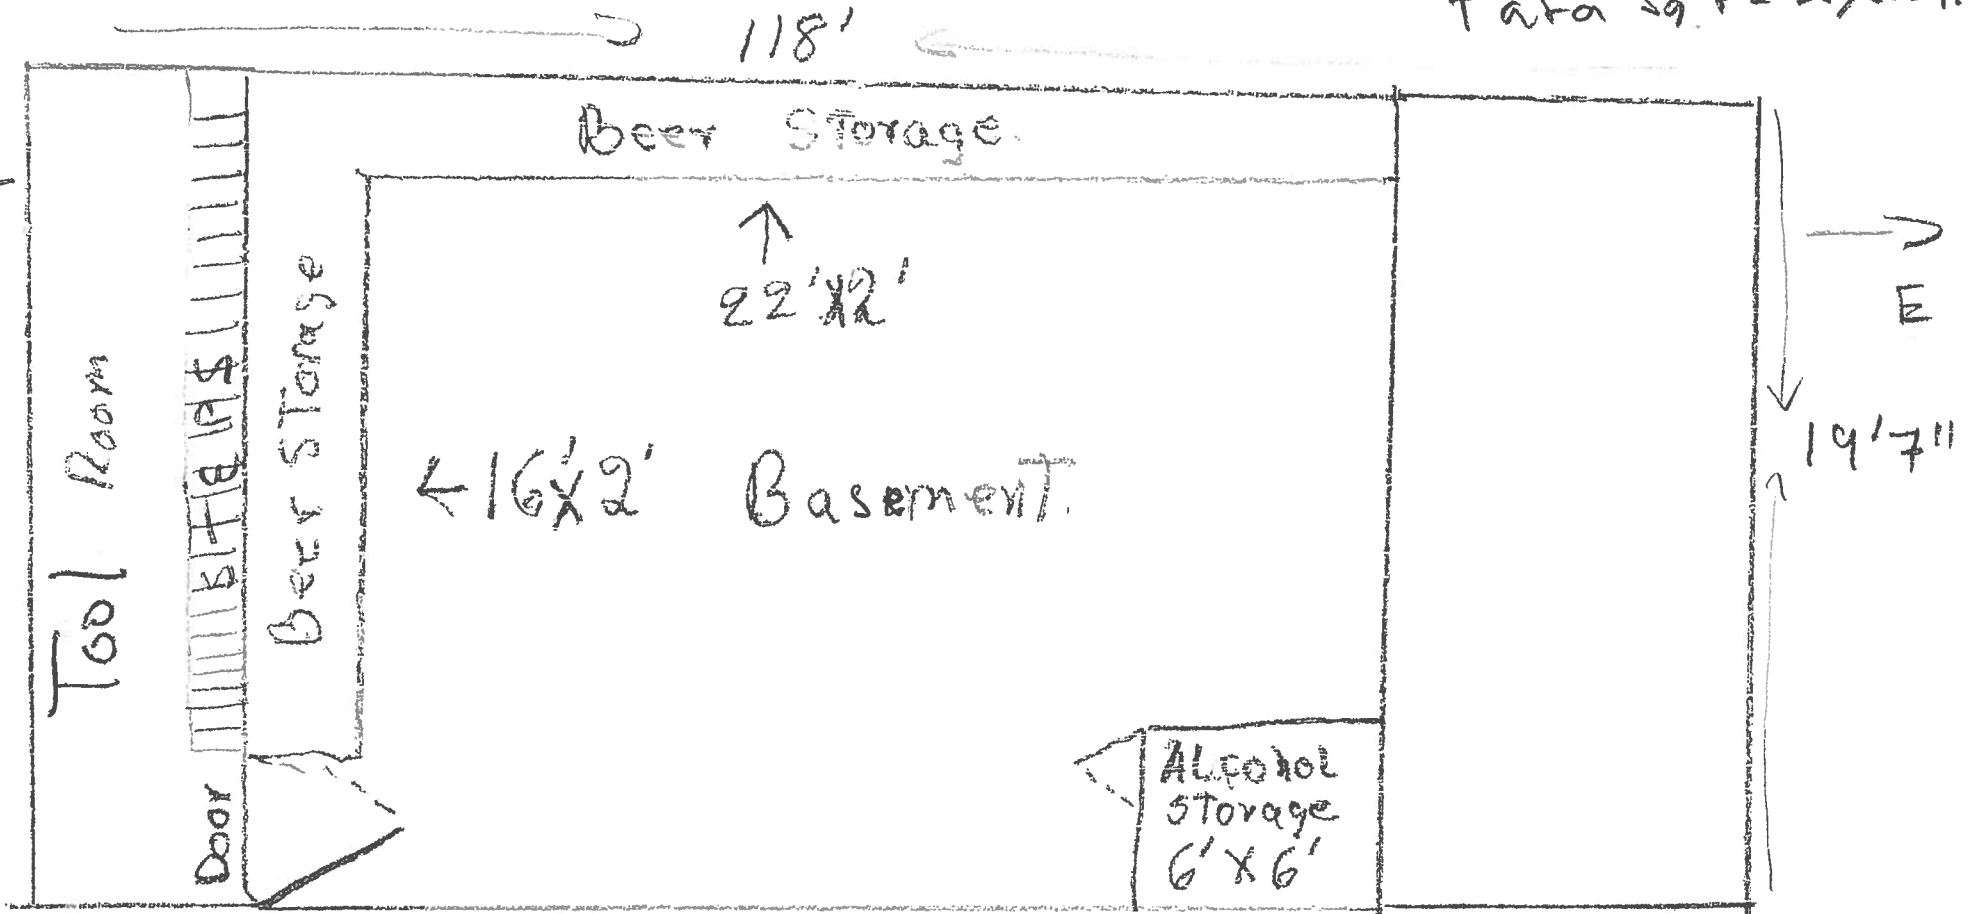 118'
Beer Storage.
22'x2'
E
Tool Room
STAIRS
Beer Storage
16'x2'
Basement.
19'7"
Door
ALcohol
Storage
6'x6'